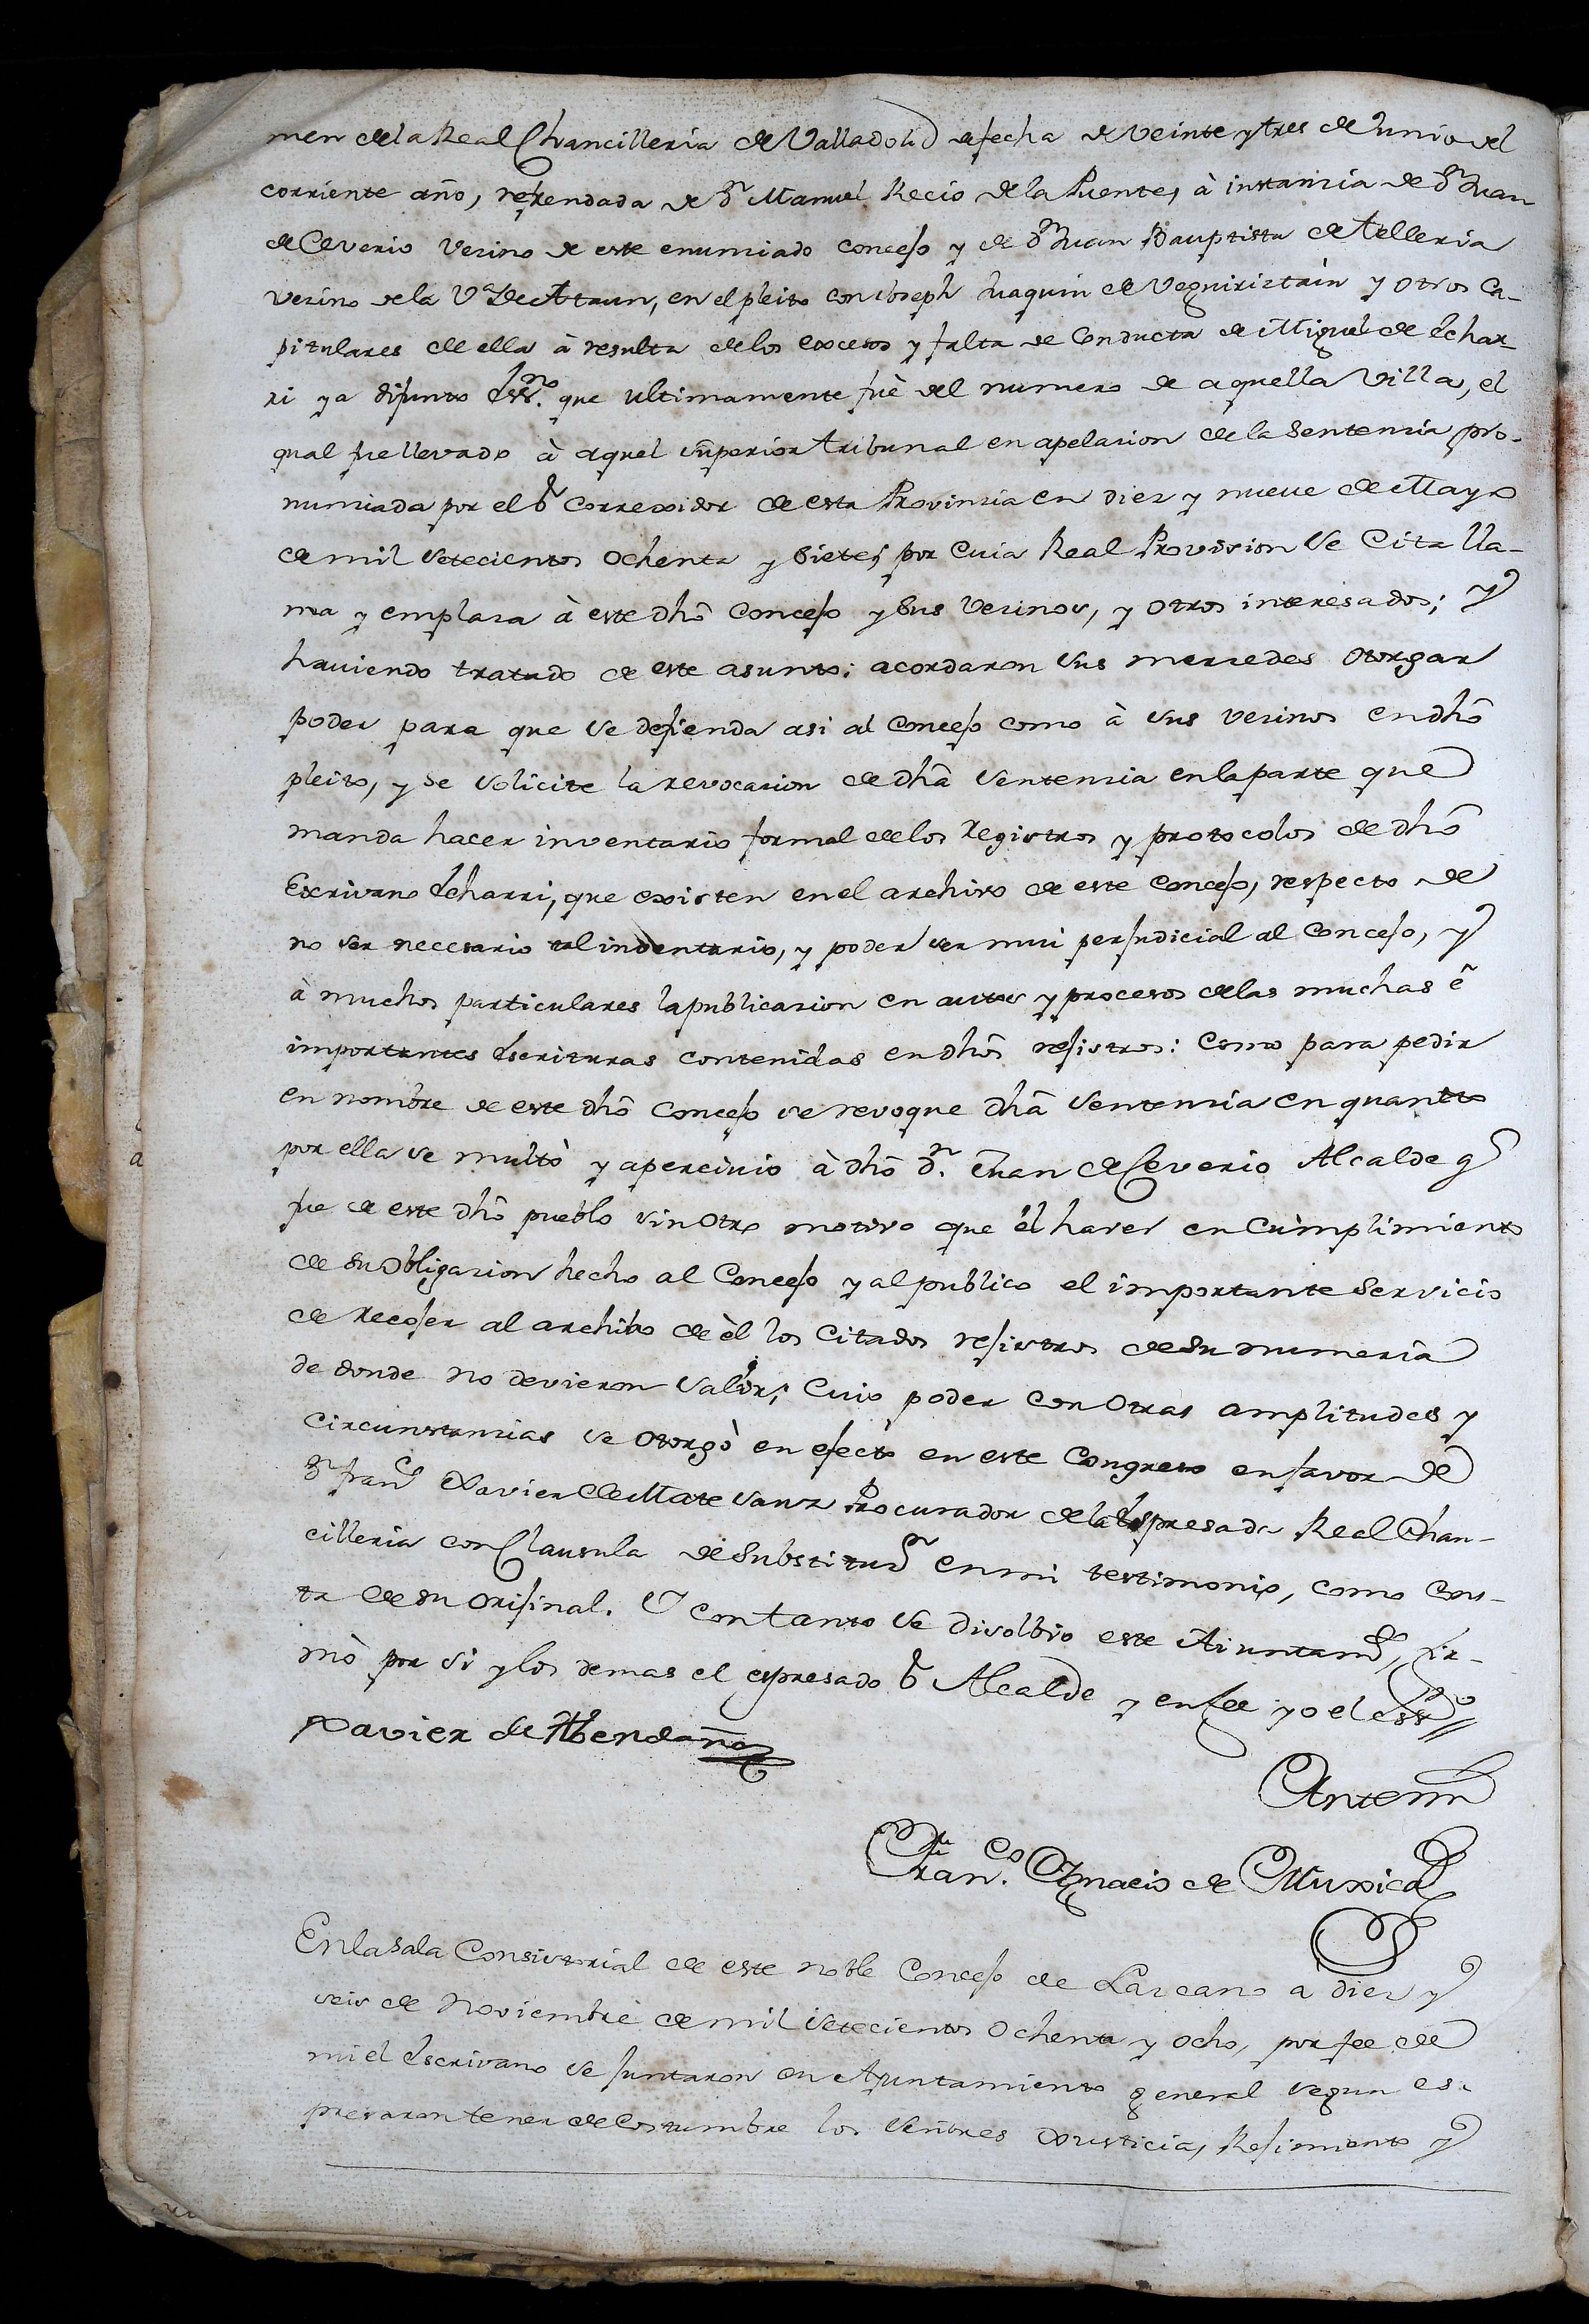 men de la Real Chancilleria de Valladolid de fecha de veinte y tres de Junio del
corriente año, refrendada de Dn. Manuel Recio de la Puente, à instanzia de Dn. Juan
de Ceverio Vezino de este enunziado concejo y de Dn. Juan Bauptista de Telleria
vezino de la Va. de Ataun, en el pleito con Joseph Juaquin de Veguiriztàin y otros Ca-
pitulares de ella à resulta de los excesos y falta de Conducta de Miguel de Echar-
ri ya difunto Essno. que ultimamente fuè del numero de aquella Villa, el
qual fue llevado à aquel superior tribunal en apelazion de la Sentenzia pro-
nunziada por el Sr. Correxidor de esta Provinzia en diez y nueve de Mayo
de mil setecientos ochenta y siete; por cuia Real Provision se Cita lla-
ma y emplaza à este dho Concejo y sus Vezinos, y otros interesados; y
haviendo tratado de este asunto: acordaron sus merzedes otorgar
poder para que se defienda asi al Concejo como à sus vezinos en dho
pleito, y se solicite la revocazion de dha sentenzia en la parte que
manda hacer inventario formal de los Registros y protocolos de dho
Excrivano Echarri, que existen en el archivo de este Concejo, respecto de
no ser necesario tal inventario, y poder ser mui perjudicial al Concejo, y
à muchos particulares la publicazion en autos y procesos de las muchas è
importantes Escrituras contenidas en dhos rejistros: Como para pedir
en nombre de este dho Concejo se revoque dha sentenzia en quantto
por ella se multò y apercivio à dho Dn. Juan de Ceverio Alcalde q
fue de este dho pueblo sin otro motivo que el haver en cumplimiento
de su obligazion hecho al Concejo y al publico el importante servicio
de recojer al archibo de èl los citados rejistros de su numeria
de donde no devieron salir; Cuio poder con otras amplitudes y
circunstanzias se otorgò en efecto en este Congreso en favor de
Dn. Franco Xavier de Mate Sanz Procurador de la Espresada Real Chan-
cilleria con Clausula de Substituon. en mi testimonio, como cons-
ta de su orijinal. Y con tanto se disolbio este Aiuntamto, fir-
mò por si y los demas el espresado Sr. Alcalde y en fee yo el Essno
Xavier de Abendaño
Ante mi
Franco. Ignacio de Muxica
En la Sala Consistorial de este noble Concejo de Lazcano a diez y
seis de Noviembre de mil setecientos ochenta y ocho, por fee de
mi el Escrivano se juntaron en Ayuntamiento general segun es-
presaron tener de Costumbre los señores Justicia, Rejimiento y